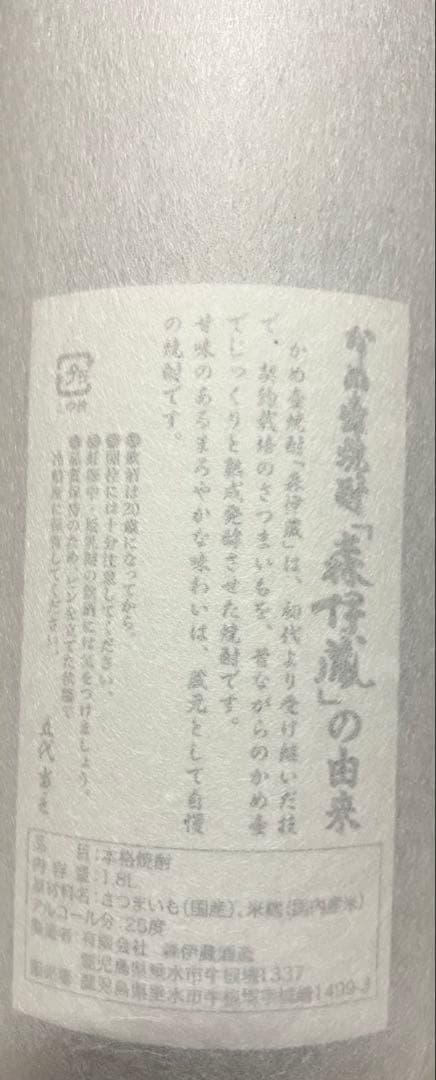 かめ壺焼酎「森伊蔵」の由来
かめ壺焼酎「森伊蔵」は、初代より受け継いだ技
で、契約栽培のさつまいもを、昔ながらのかめ壺
でじっくりと熟成発酵させた焼酎です。
甘味のあるまろやかな味わいは、蔵元として自慢
の焼酎です。
飲酒は20歳になってから。
開栓には十分注意してください。
妊娠中・授乳期の飲酒には気をつけましょう。
品質保持のため、ビンを立てた状態で
冷暗所に保管してください。
五代当主
品目:本格焼酎
内容量:1.8L
原材料名:さつまいも(国産)、米麹(国内産米)
アルコール分:25度
製造者:有限会社 森伊蔵酒造
鹿児島県垂水市牛根境1337
鹿児島県垂水市牛根